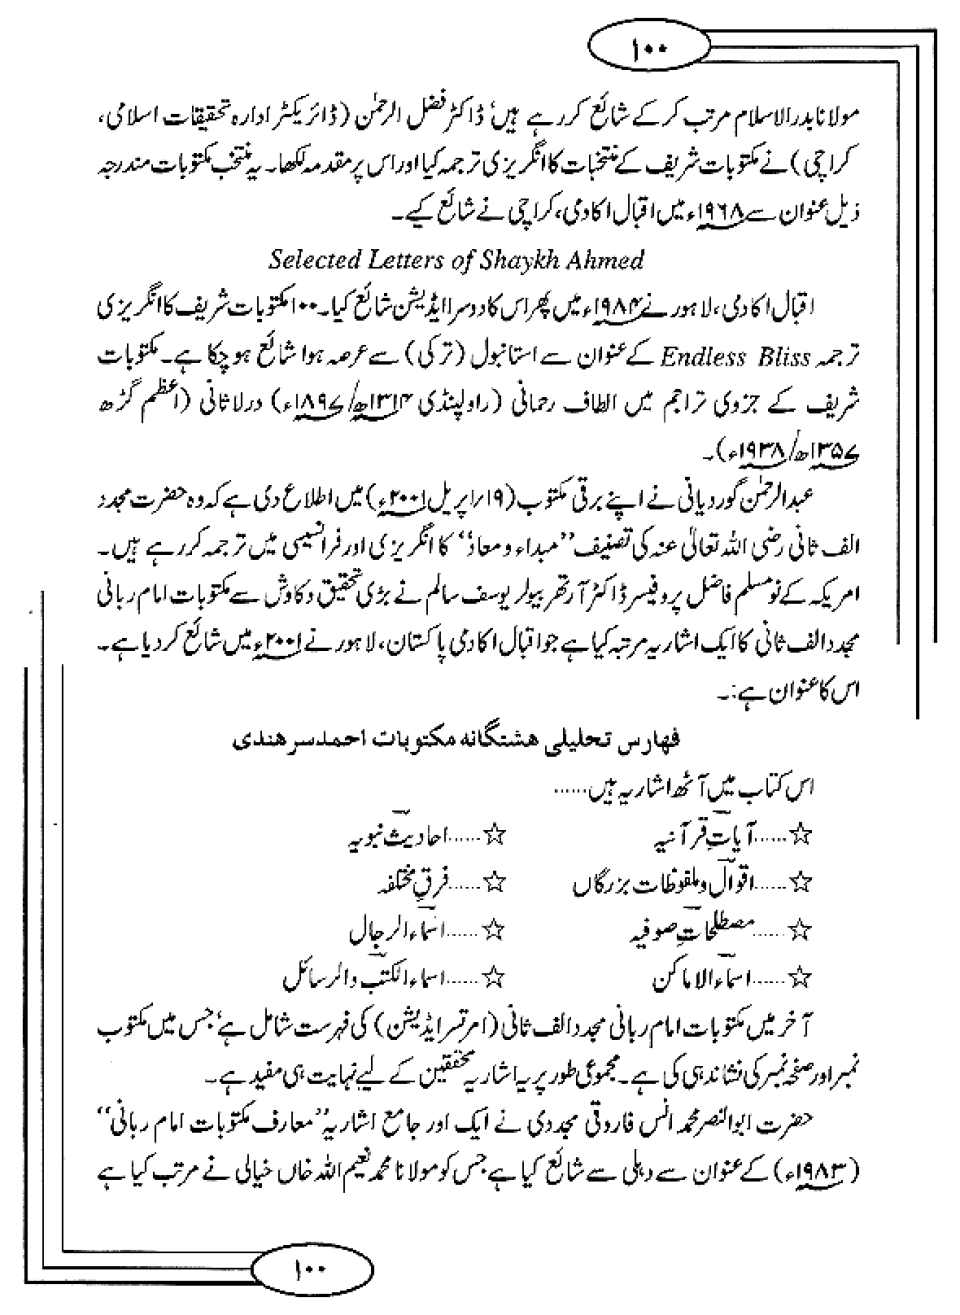 ۱۰۰
مولانا بدر الاسلام مرتب کر کے شائع کر رہے ہیں' ڈاکٹر فضل الرحمٰن (ڈائریکٹر ادارہ تحقیقات اسلامی،
کراچی) نے مکتوبات شریف کے منتخبات کا انگریزی ترجمہ کیا اور اس پر مقدمہ لکھا۔ یہ منتخب مکتوبات مندرجہ
ذیل عنوان سے ۱۹۶۸ء میں اقبال اکادمی، کراچی نے شائع کیے۔
Selected Letters of Shaykh Ahmed
اقبال اکادمی، لاہور نے ۱۹۸۴ء میں پھر اس کا دوسرا ایڈیشن شائع کیا۔ ۱۰۰ مکتوبات شریف کا انگریزی
ترجمہ Endless Bliss کے عنوان سے استانبول (ترکی) سے عرصہ ہوا شائع ہو چکا ہے۔ مکتوبات
شریف کے جزوی تراجم میں الطاف رحمانی (راولپنڈی ۱۳۱۴ھ/۱۸۹۷ء) درلاثانی (اعظم گڑھ
۱۳۵۷ھ/۱۹۳۸ء)۔
عبدالرحمٰن گوردیانی نے اپنے برقی مکتوب (۱۹/اپریل ۲۰۰۱ء) میں اطلاع دی ہے کہ وہ حضرت مجدد
الف ثانی رضی اللہ تعالیٰ عنہ کی تصنیف ''مبداء و معاد'' کا انگریزی اور فرانسیسی میں ترجمہ کر رہے ہیں۔
امریکہ کے نو مسلم فاضل پروفیسر ڈاکٹر آرتھر بیولر یوسف سالم نے بڑی تحقیق و کاوش سے مکتوبات امام ربانی
مجدد الف ثانی کا ایک اشاریہ مرتبہ کیا ہے جو اقبال اکادمی پاکستان، لاہور نے ۲۰۰۱ء میں شائع کر دیا ہے۔
اس کا عنوان ہے:۔
فهارس تحلیلی هشتگانه مکتوبات احمد سرهندی
اس کتاب میں آٹھ اشاریہ ہیں......
☆......آیاتِ قرآنیہ ☆......احادیث نبویہ
☆......اقوال و ملفوظات بزرگاں ☆......فرقِ مختلفہ
☆......مصطلحاتِ صوفیہ ☆......اسماء الرجال
☆......اسماء الاماکن ☆......اسماء الکتب والرسائل
آخر میں مکتوبات امام ربانی مجدد الف ثانی (امرتسر ایڈیشن) کی فہرست شامل ہے' جس میں مکتوب
نمبر اور صفحہ نمبر کی نشاندہی کی ہے۔ مجموعی طور پر یہ اشاریہ محققین کے لیے نہایت ہی مفید ہے۔
حضرت ابوالنصر محمد انس فاروقی مجددی نے ایک اور جامع اشاریہ ''معارف مکتوبات امام ربانی''
(۱۹۸۳ء) کے عنوان سے دہلی سے شائع کیا ہے جس کو مولانا محمد نعیم اللہ خاں خیالی نے مرتب کیا ہے
۱۰۰